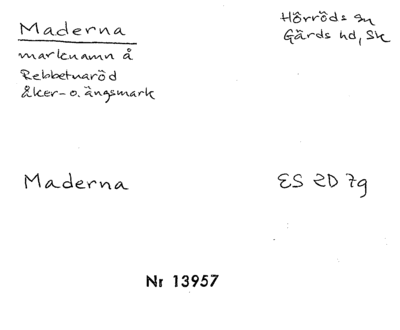 Maderna
Hörröds sn
Gärds hd, Sk
marknamn å
Rebbetuaröd
åker- o. ängsmark
Maderna
ES 2D 7g
Nr 13957